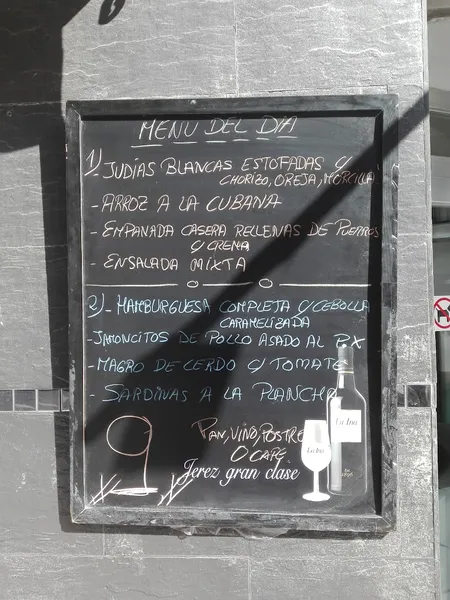 MENU DEL DIA
1) JUDIAS BLANCAS ESTOFADAS C/
CHORIZO, OREJA, MORCILLA
- ARROZ A LA CUBANA
- EMPANADA CASERA RELLENAS DE PUERROS
C/ CREMA
- ENSALADA MIXTA
2) - HAMBURGUESA COMPLETA C/ CEBOLLA
CARAMELIZADA
- JAMONCITOS DE POLLO ASADO AL PX
- MAGRO DE CERDO C/ TOMATE
- SARDINAS A LA PLANCHA
9
PAN, VINO, POSTRE
O CAFE
Jerez gran clase
La Ina
La Ina